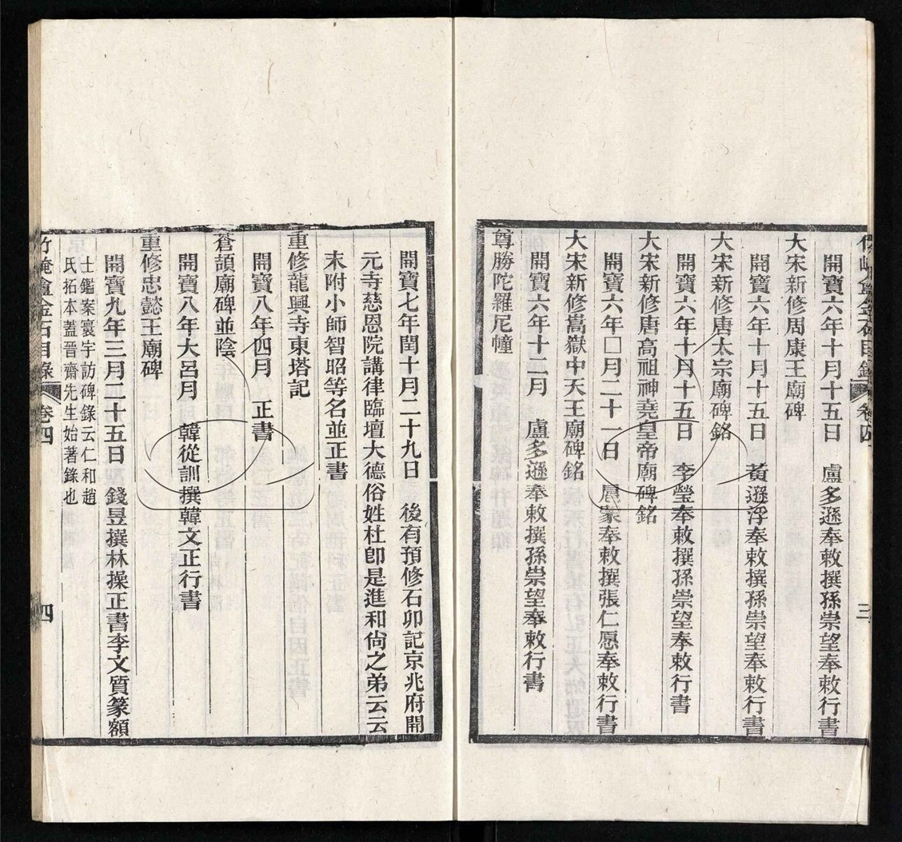 開寶六年十月十五日 盧多遜奉敕撰孫崇望奉敕行書
大宋新修周康王廟碑
開寶六年十月十五日 黃遜浮奉敕撰孫崇望奉敕行書
大宋新修唐太宗廟碑銘
開寶六年十月十五日 李瑩奉敕撰孫崇望奉敕行書
大宋新修唐高祖神堯皇帝廟碑銘
開寶六年□月二十一日 扈蒙奉敕撰張仁愿奉敕行書
大宋新修嵩嶽中天王廟碑銘
開寶六年十二月 盧多遜奉敕撰孫崇望奉敕行書
尊勝陀羅尼幢
開寶七年閏十月二十九日 後有預修石卯記京兆府開
元寺慈恩院講律臨壇大德俗姓杜卽是進和尙之弟云云
末附小師智昭等名並正書
重修龍興寺東塔記
開寶八年四月 正書
蒼頡廟碑並陰
開寶八年大呂月 韓從訓撰韓文正行書
重修忠懿王廟碑
開寶九年三月二十五日 錢昱撰林操正書李文質篆額
士鑑案寰宇訪碑錄云仁和趙
氏拓本蓋晉齋先生始著錄也
竹崦盦金石目錄 卷四 四